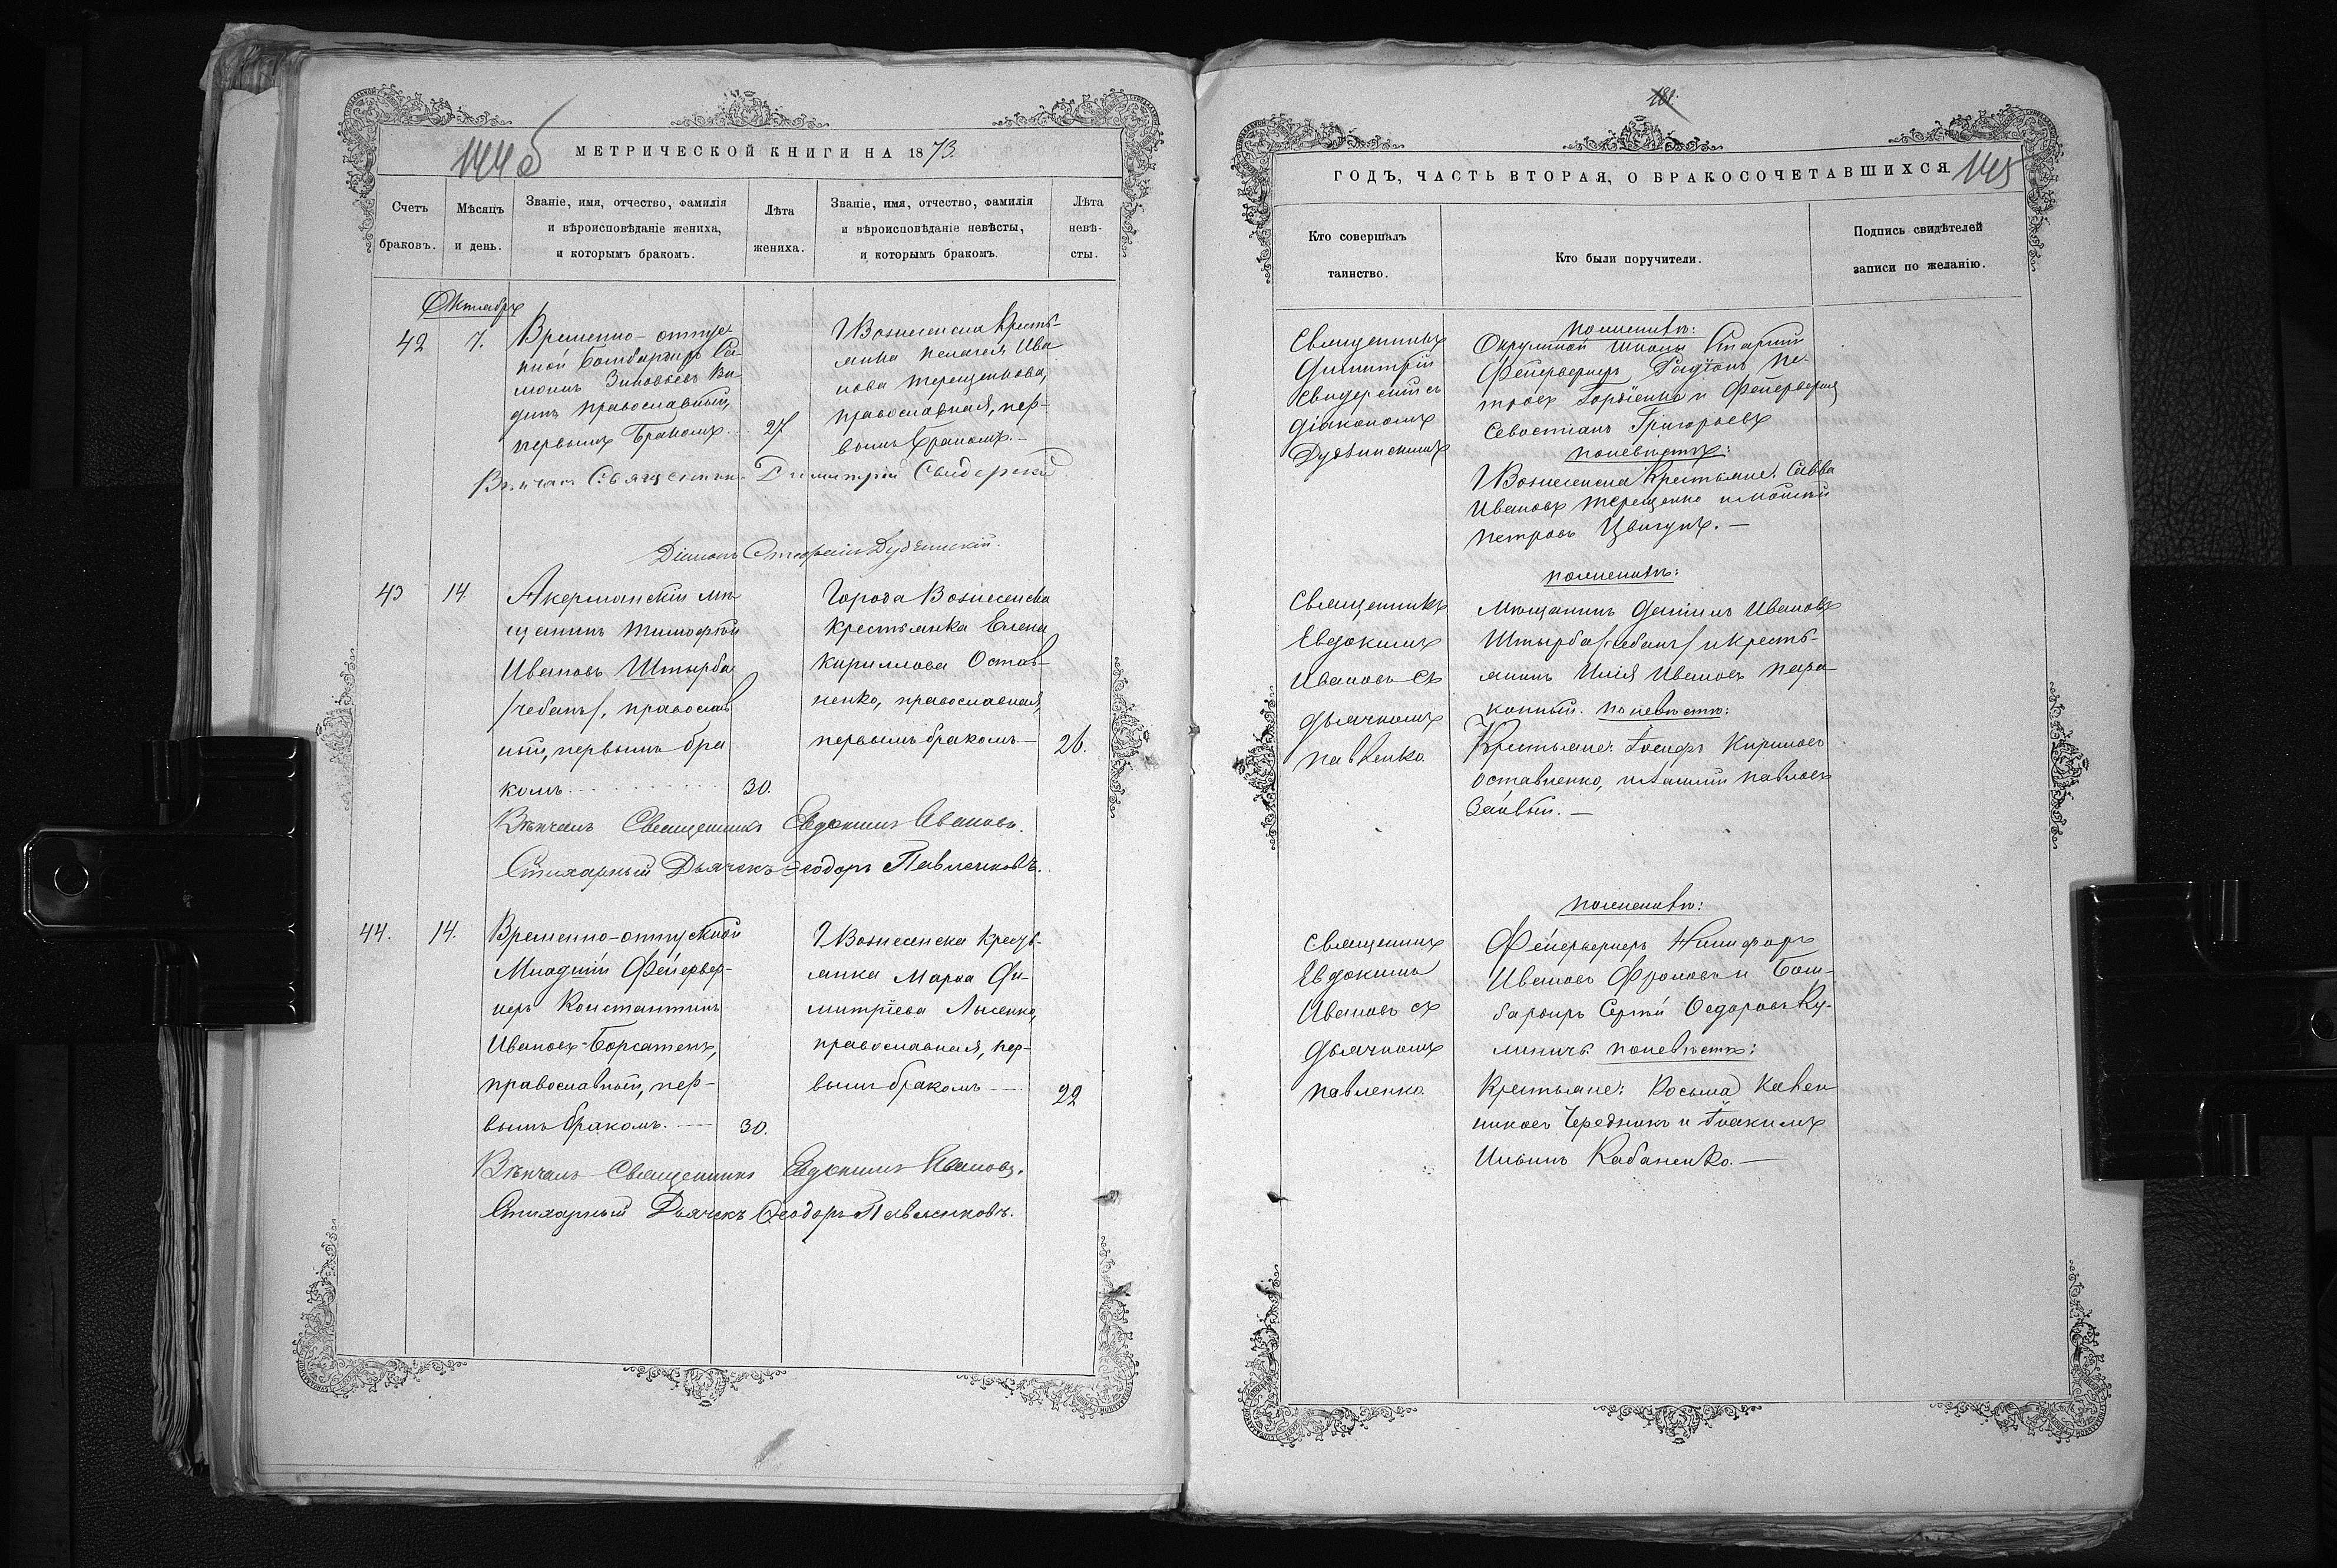 144об
МЕТРИЧЕСКОЙ КНИГИ НА 1873.
Счетъ браковъ.
Мѣсяцъ и день.
Званіе, имя, отчество, фамилія
и вѣроисповѣданіе жениха,
и которымъ бракомъ.
Лѣта
жениха.
Званіе, имя, отчество, фамилія
и вѣроисповѣданіе невѣсты,
и которымъ бракомъ.
Лѣта
невѣ-
сты.
Октябрь
42
7.
Временно-отпус
кной Бомбардиръ Са
моилъ Зиновьевъ Ва
динъ православный,
первымъ бракомъ
27
Г Вознесенска Кресть-
янка Пелагея Ива
нова Терещенкова,
православная, пер-
вымъ бракомъ.-
Вѣнчалъ Священникъ Димитрій Свидерскій
Діаконъ Стефанъ Дубинскій.
43
14.
Акерманскій мѣ
щанинъ Тимофѣй
Ивановъ Штырба
/чебанъ/, православ
ный, первымъ бра
комъ
30.
Города Вознесенска
крестьянка Елена
Кириллова Остав-
ненко, православная,
первымъ бракомъ-
26.
Вѣнчалъ Священникъ Евдокимъ Ивановъ.
Стихарный Дьячекъ Ѳеодоръ Павленковъ.
44.
14.
Временно-отпускной
Младшій Фейервер-
керъ Константинъ
Ивановъ Борсатенъ,
православный, пер-
вымъ бракомъ.
30.
Г Вознесенска Кресть-
янка Марѳа Ди-
митріева Лысенко,
православная, пер-
вымъ бракомъ
22
Вѣнчалъ Священникъ Евдокимъ Ивановъ.
Стихарный Дьячекъ Ѳеодоръ Павленковъ.
181.
ГОДЪ, ЧАСТЬ ВТОРАЯ, О БРАКОСОЧЕТАВШИХСЯ
145
Кто совершалъ
таинство.
Кто были поручители.
Подпись свидѣтелей
записи по желанію.
Священникъ
Димитрій
Свидерскій съ
діакономъ
Дубинскимъ
по женихѣ:
Окружной школы Старшій
Фейерверкеръ Радіонъ Пе-
тровъ Гордіенко и Фейерверкеръ
Севостіанъ Григорьевъ
по невѣстѣ:
Г Вознесенска Крестьяне: Савва
Ивановъ Терещенко и Моисей
Петровъ Цвигунъ. -
Священникъ
Евдокимъ
Ивановъ съ
дьячкомъ
Павленко
по женихѣ:
Мѣщанинъ Даніилъ Ивановъ
Штырба /чебанъ/ и кресть-
янинъ Илія Ивановъ пера
конный. по невѣстѣ:
Крестьяне: Іосифъ Кириловъ
Оставненко, и Павловъ
Заивый. -
Священникъ
Евдокимъ
Ивановъ съ
дьячкомъ
Павленко.
по женихѣ:
Фейерверкеръ Никифоръ
Ивановъ Фроловъ и Бом-
бардиръ Сергѣй Ѳедоровъ Ку-
линичъ. по невѣстѣ:
Крестьяне: Косьма Кален
никовъ Чередникъ и Іоакимъ
Ильинъ Кабаненко. -